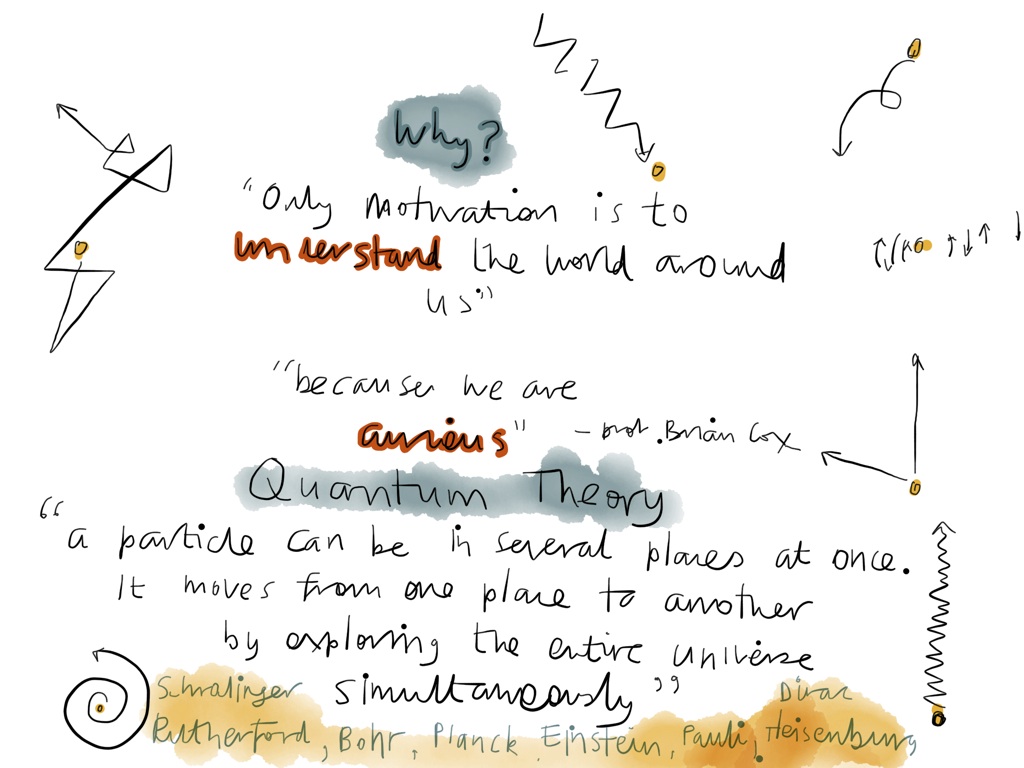 Why?
"Only motivation is to
understand the world around
us"
"because we are
curious" - prof. Brian Cox
Quantum Theory
"a particle can be in several places at once.
It moves from one place to another
by exploring the entire universe
simultaneously"
Schrodinger Dirac
Rutherford, Bohr, Planck Einstein, Pauli, Heisenburg